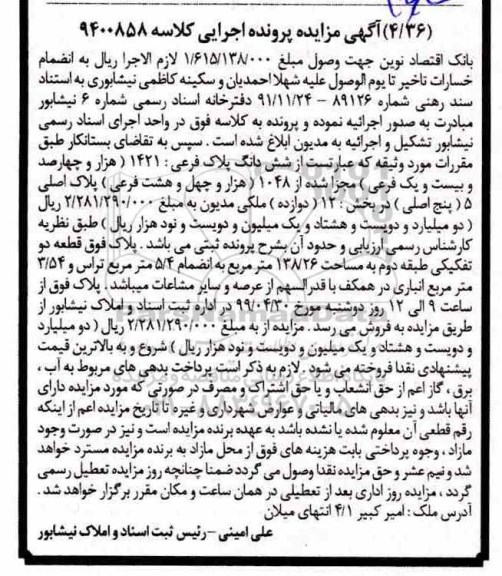 (۴/۳۶) آگهی مزایده پرونده اجرایی کلاسه ۹۴۰۰۸۵۸
بانک اقتصاد نوین جهت وصول مبلغ ۱/۶۱۵/۱۳۸/۰۰۰ لازم الاجرا ریال به انضمام
خسارات تاخیر تا یوم الوصول علیه شهلا احمدیان و سکینه کاظمی نیشابوری به استناد
سند رهنی شماره ۸۹۱۲۶ – ۹۱/۱۱/۲۴ دفترخانه اسناد رسمی شماره ۶ نیشابور
مبادرت به صدور اجرائیه نموده و پرونده به کلاسه فوق در واحد اجرای اسناد رسمی
نیشابور تشکیل و اجرائیه به مدیون ابلاغ شده است . سپس به تقاضای بستانکار طبق
مقررات مورد وثیقه که عبارتست از شش دانگ پلاک فرعی : ۱۴۲۱ ( هزار و چهارصد
و بیست و یک فرعی ) مجزا شده از ۱۰۴۸ ( هزار و چهل و هشت فرعی ) پلاک اصلی
۵ ( پنج اصلی ) در بخش : ۱۲ ( دوازده ) ملکی مدیون به مبلغ ۲/۲۸۱/۲۹۰/۰۰۰ ریال
( دو میلیارد و دویست و هشتاد و یک میلیون و دویست و نود هزار ریال ) طبق نظریه
کارشناس رسمی ارزیابی و حدود آن بشرح پرونده ثبتی می باشد . پلاک فوق قطعه دو
تفکیکی طبقه دوم به مساحت ۱۳۸/۲۶ متر مربع به انضمام ۵/۴ متر مربع تراس و ۳/۵۴
متر مربع انباری در همکف با قدرالسهم از عرصه و سایر مشاعات میباشد . پلاک فوق از
ساعت ۹ الی ۱۲ روز دوشنبه مورخ ۹۹/۰۴/۳۰ در اداره ثبت اسناد و املاک نیشابور از
طریق مزایده به فروش می رسد . مزایده از به مبلغ ۲/۲۸۱/۲۹۰/۰۰۰ ریال ( دو میلیارد
و دویست و هشتاد و یک میلیون و دویست و نود هزار ریال ) شروع و به بالاترین قیمت
پیشنهادی نقدا فروخته می شود . لازم به ذکر است پرداخت بدهی های مربوط به آب ،
برق ، گاز اعم از حق انشعاب و یا حق اشتراک و مصرف در صورتی که مورد مزایده دارای
آنها باشد و نیز بدهی های مالیاتی و عوارض شهرداری و غیره تا تاریخ مزایده اعم از اینکه
رقم قطعی آن معلوم شده یا نشده باشد به عهده برنده مزایده است و نیز در صورت وجود
مازاد ، وجوه پرداختی بابت هزینه های فوق از محل مازاد به برنده مزایده مسترد خواهد
شد و نیم عشر و حق مزایده نقدا وصول می گردد ضمنا چنانچه روز مزایده تعطیل رسمی
گردد ، مزایده روز اداری بعد از تعطیلی در همان ساعت و مکان مقرر برگزار خواهد شد .
آدرس ملک : امیر کبیر ۴/۱ انتهای میلان
علی امینی – رئیس ثبت اسناد و املاک نیشابور